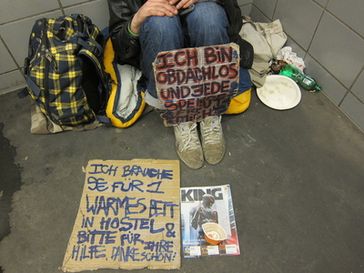 ICH BIN
OBDACHLOS
UND JEDE
ICH BRAUCHE
FÜR 1
WARMES BETT
IN HOSTEL &
BITTE FÜR IHRE
HILFE, DANKE SCHÖN!
KING